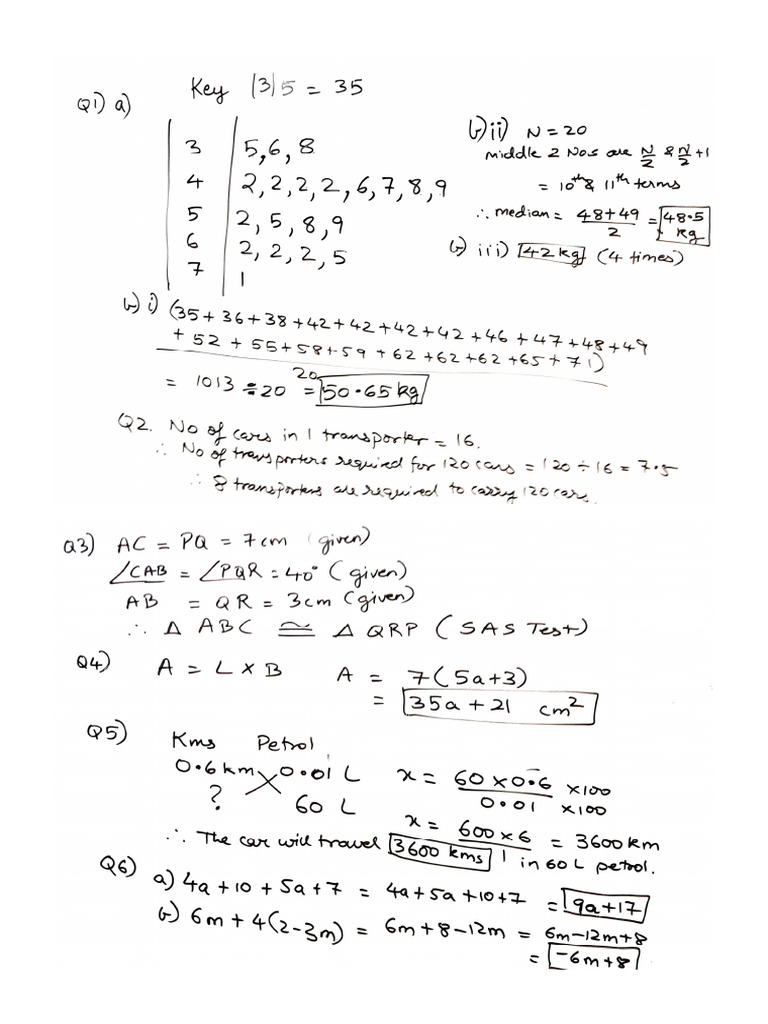 Key |3|5 = 35
Q1) a)
3 | 5, 6, 8
4 | 2, 2, 2, 2, 6, 7, 8, 9
5 | 2, 5, 8, 9
6 | 2, 2, 2, 5
7 | 1
b) ii) N = 20
middle 2 Nos are N/2 & N/2 + 1
= 10th & 11th terms
∴ median = (48+49)/2 = 48.5 kg
b) iii) 42 kg (4 times)
b) i) (35 + 36 + 38 + 42 + 42 + 42 + 42 + 46 + 47 + 48 + 49
+ 52 + 55 + 58 + 59 + 62 + 62 + 62 + 65 + 71)
20
= 1013 ÷ 20 = 50.65 kg
Q2. No of cars in 1 transporter = 16.
∴ No of transporters required for 120 cars = 120 ÷ 16 = 7.5
∴ 8 transporters are required to carry 120 cars.
Q3) AC = PQ = 7 cm (given)
∠CAB = ∠PQR = 40° (given)
AB = QR = 3 cm (given)
∴ Δ ABC ≅ Δ QRP (SAS Test)
Q4) A = L × B A = 7(5a+3)
= 35a + 21 cm²
Q5) Kms Petrol
0.6 km 0.01 L x = (60 × 0.6)/0.01 ×100/×100
? 60 L
x = (600 × 6)/1 = 3600 km
∴ The car will travel 3600 kms in 60 L petrol.
Q6) a) 4a + 10 + 5a + 7 = 4a + 5a + 10 + 7 = 9a + 17
b) 6m + 4(2 - 3m) = 6m + 8 - 12m = 6m - 12m + 8
= -6m + 8